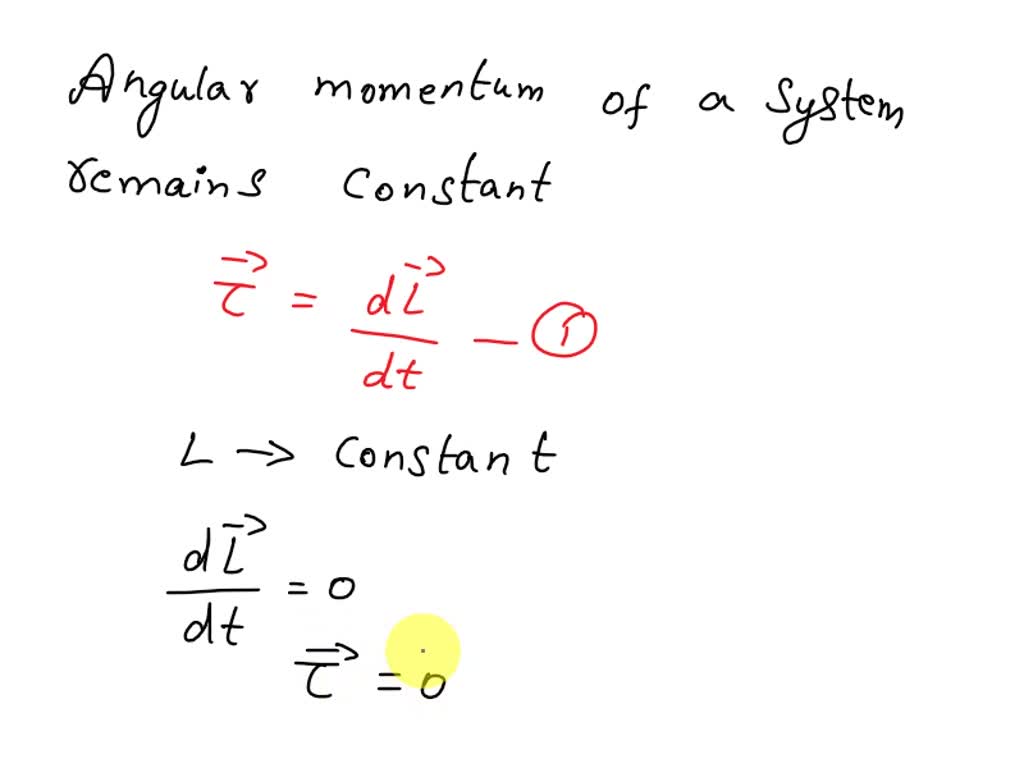 Angular momentum of a system
remains constant
τ⃗ = dL⃗/dt — ①
L → constant
dL⃗/dt = 0
τ⃗ = 0